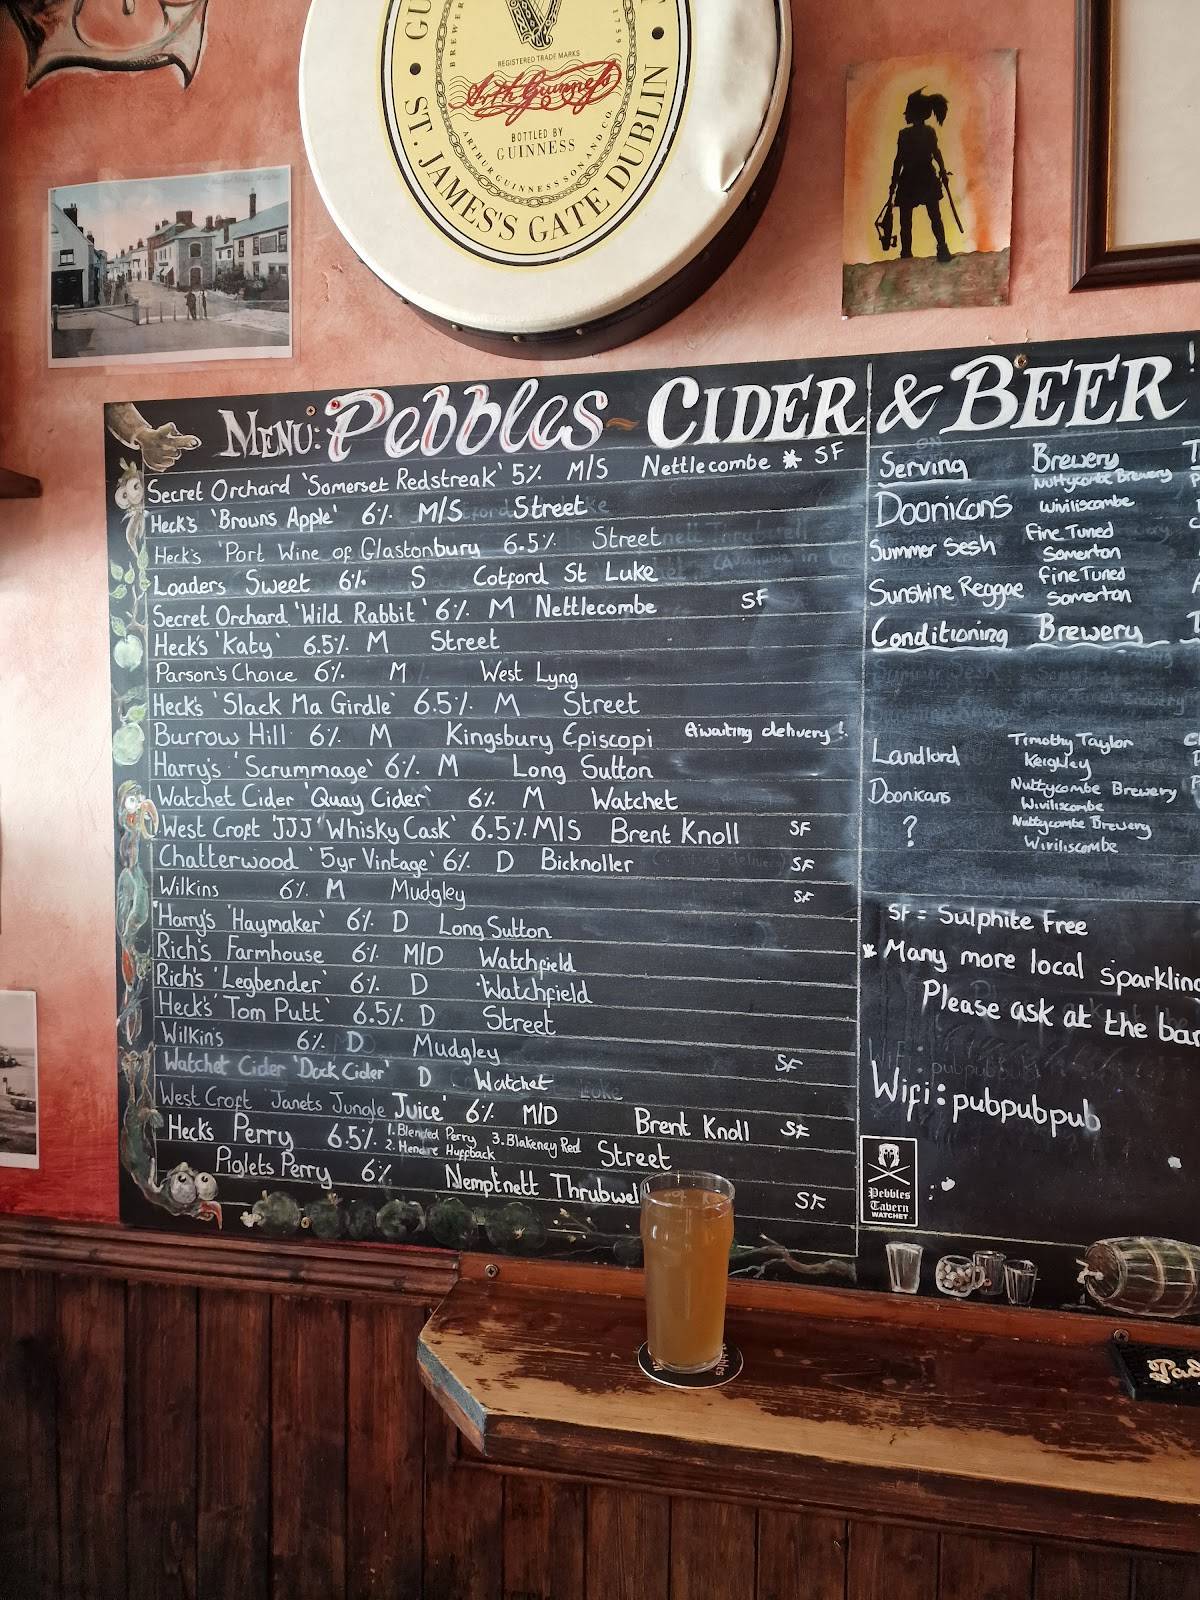 BREWERY
1759
REGISTERED TRADE MARKS
Arth Guinness
BOTTLED BY
GUINNESS
ARTHUR GUINNESS SON AND CO.
ST. JAMES'S GATE DUBLIN
MENU: Pebbles ~ CIDER & BEER!
Secret Orchard 'Somerset Redstreak' 5% M/S Nettlecombe * SF
Heck's 'Browns Apple' 6% M/S Street
Heck's 'Port Wine of Glastonbury 6.5% Street
Loaders Sweet 6% S Cotford St Luke
Secret Orchard 'Wild Rabbit' 6% M Nettlecombe SF
Heck's 'Katy' 6.5% M Street
Parson's Choice 6% M West Lyng
Heck's 'Slack Ma Girdle' 6.5% M Street
Burrow Hill 6% M Kingsbury Episcopi Awaiting delivery!
Harry's 'Scrummage' 6% M Long Sutton
Watchet Cider 'Quay Cider' 6% M Watchet
West Croft 'JJJ' 'Whisky Cask' 6.5% M/S Brent Knoll SF
Chatterwood '5yr Vintage' 6% D Bicknoller SF
Wilkins 6% M Mudgley SF
Harry's 'Haymaker' 6% D Long Sutton
Rich's Farmhouse 6% M/D Watchfield
Rich's 'Legbender' 6% D Watchfield
Heck's 'Tom Putt' 6.5% D Street
Wilkin's 6% D Mudgley SF
Watchet Cider 'Dock Cider' D Watchet
West Croft 'Janets Jungle Juice' 6% M/D Brent Knoll SF
Heck's Perry 6.5% 1. Blended Perry 3. Blakeney Red Street
2. Hendre Huffback
Piglets Perry 6% Nemptnett Thrubwel SF
Serving Brewery
Nuttycombe Brewery
Doonicans Wiviliscombe
Summer Sesh Fine Tuned
Somerton
Sunshine Reggae Fine Tuned
Somerton
Conditioning Brewery
Landlord Timothy Taylor
Keighley
Doonicans Nuttycombe Brewery
Wiviliscombe
? Nuttycombe Brewery
Wiviliscombe
SF = Sulphite Free
* Many more local sparkling
Please ask at the bar
Wifi: pubpubpub
Pebbles
Tavern
WATCHET